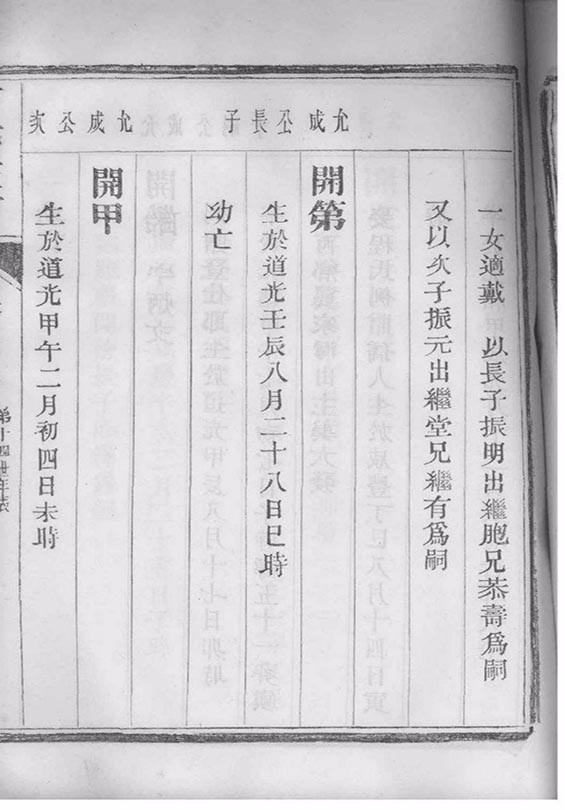 一女適戴 以長子振明出繼胞兄恭壽爲嗣
又以次子振元出繼堂兄繼有爲嗣
允成公長子
開第
生於道光壬辰八月二十八日巳時
幼亡
允成公次
開甲
生於道光甲午二月初四日未時